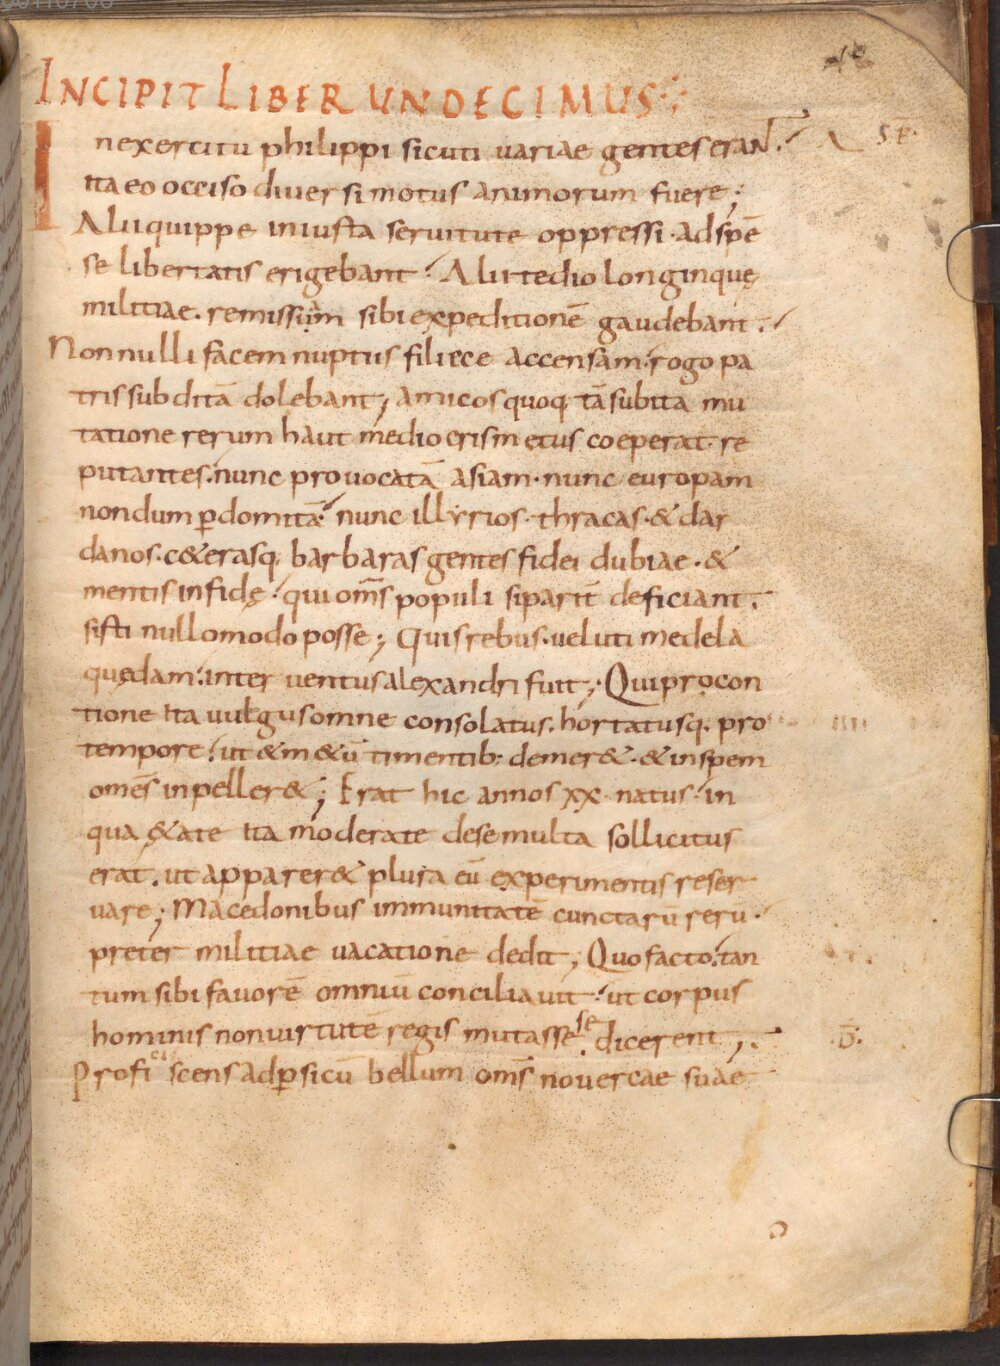 INCIPIT LIBER UNDECIMUS
In exercitu philippi sicuti variae gentes erant.
ita eo occiso diversi motus animorum fuere;
Alii quippe iniusta servitute oppressi. ad spē
se libertatis erigebant. Alii tedio longinquę
militiae. remissam sibi expeditionē gaudebant.
Non nulli facem nuptiis filięce accensam. rogo pa
tris subditā dolebant; amicos quoq; tā subita mu
tatione rerum haut mediocris metus coeperat. re
putantes. nunc provocatā asiam. nunc europam
nondum ꝑdomitā. nunc illyrios. thracas. & dar
danos. c&erasq; barbaras gentes fidei dubiae. &
mentis infidę. qui om̄s populi si pariт̄ deficiant.
sisti nullo modo posse; Quis rebus. veluti medela
quędam. inter ventus alexandri fuit; Qui pro con
tione ita vulgus omne consolatus. hortatusq; pro
tempore. ut & m&ū timentib; demer&. & in spem
omēs inpeller&; Erat hic annos xx. natus. in
qua &ate ita moderate de se multa sollicitus
erat. ut apparer& plura eū experimentis reser
vare; Macedonibus immunitatē cunctarū rerū.
preter militiae vacatione dedit; Quo facto. tan
tum sibi favorē omniū conciliavit. ut corpus
hominis non virtutē regis mutasse se dicerent;
Proficiscens ad ꝑsicū bellum om̄s novercae suae